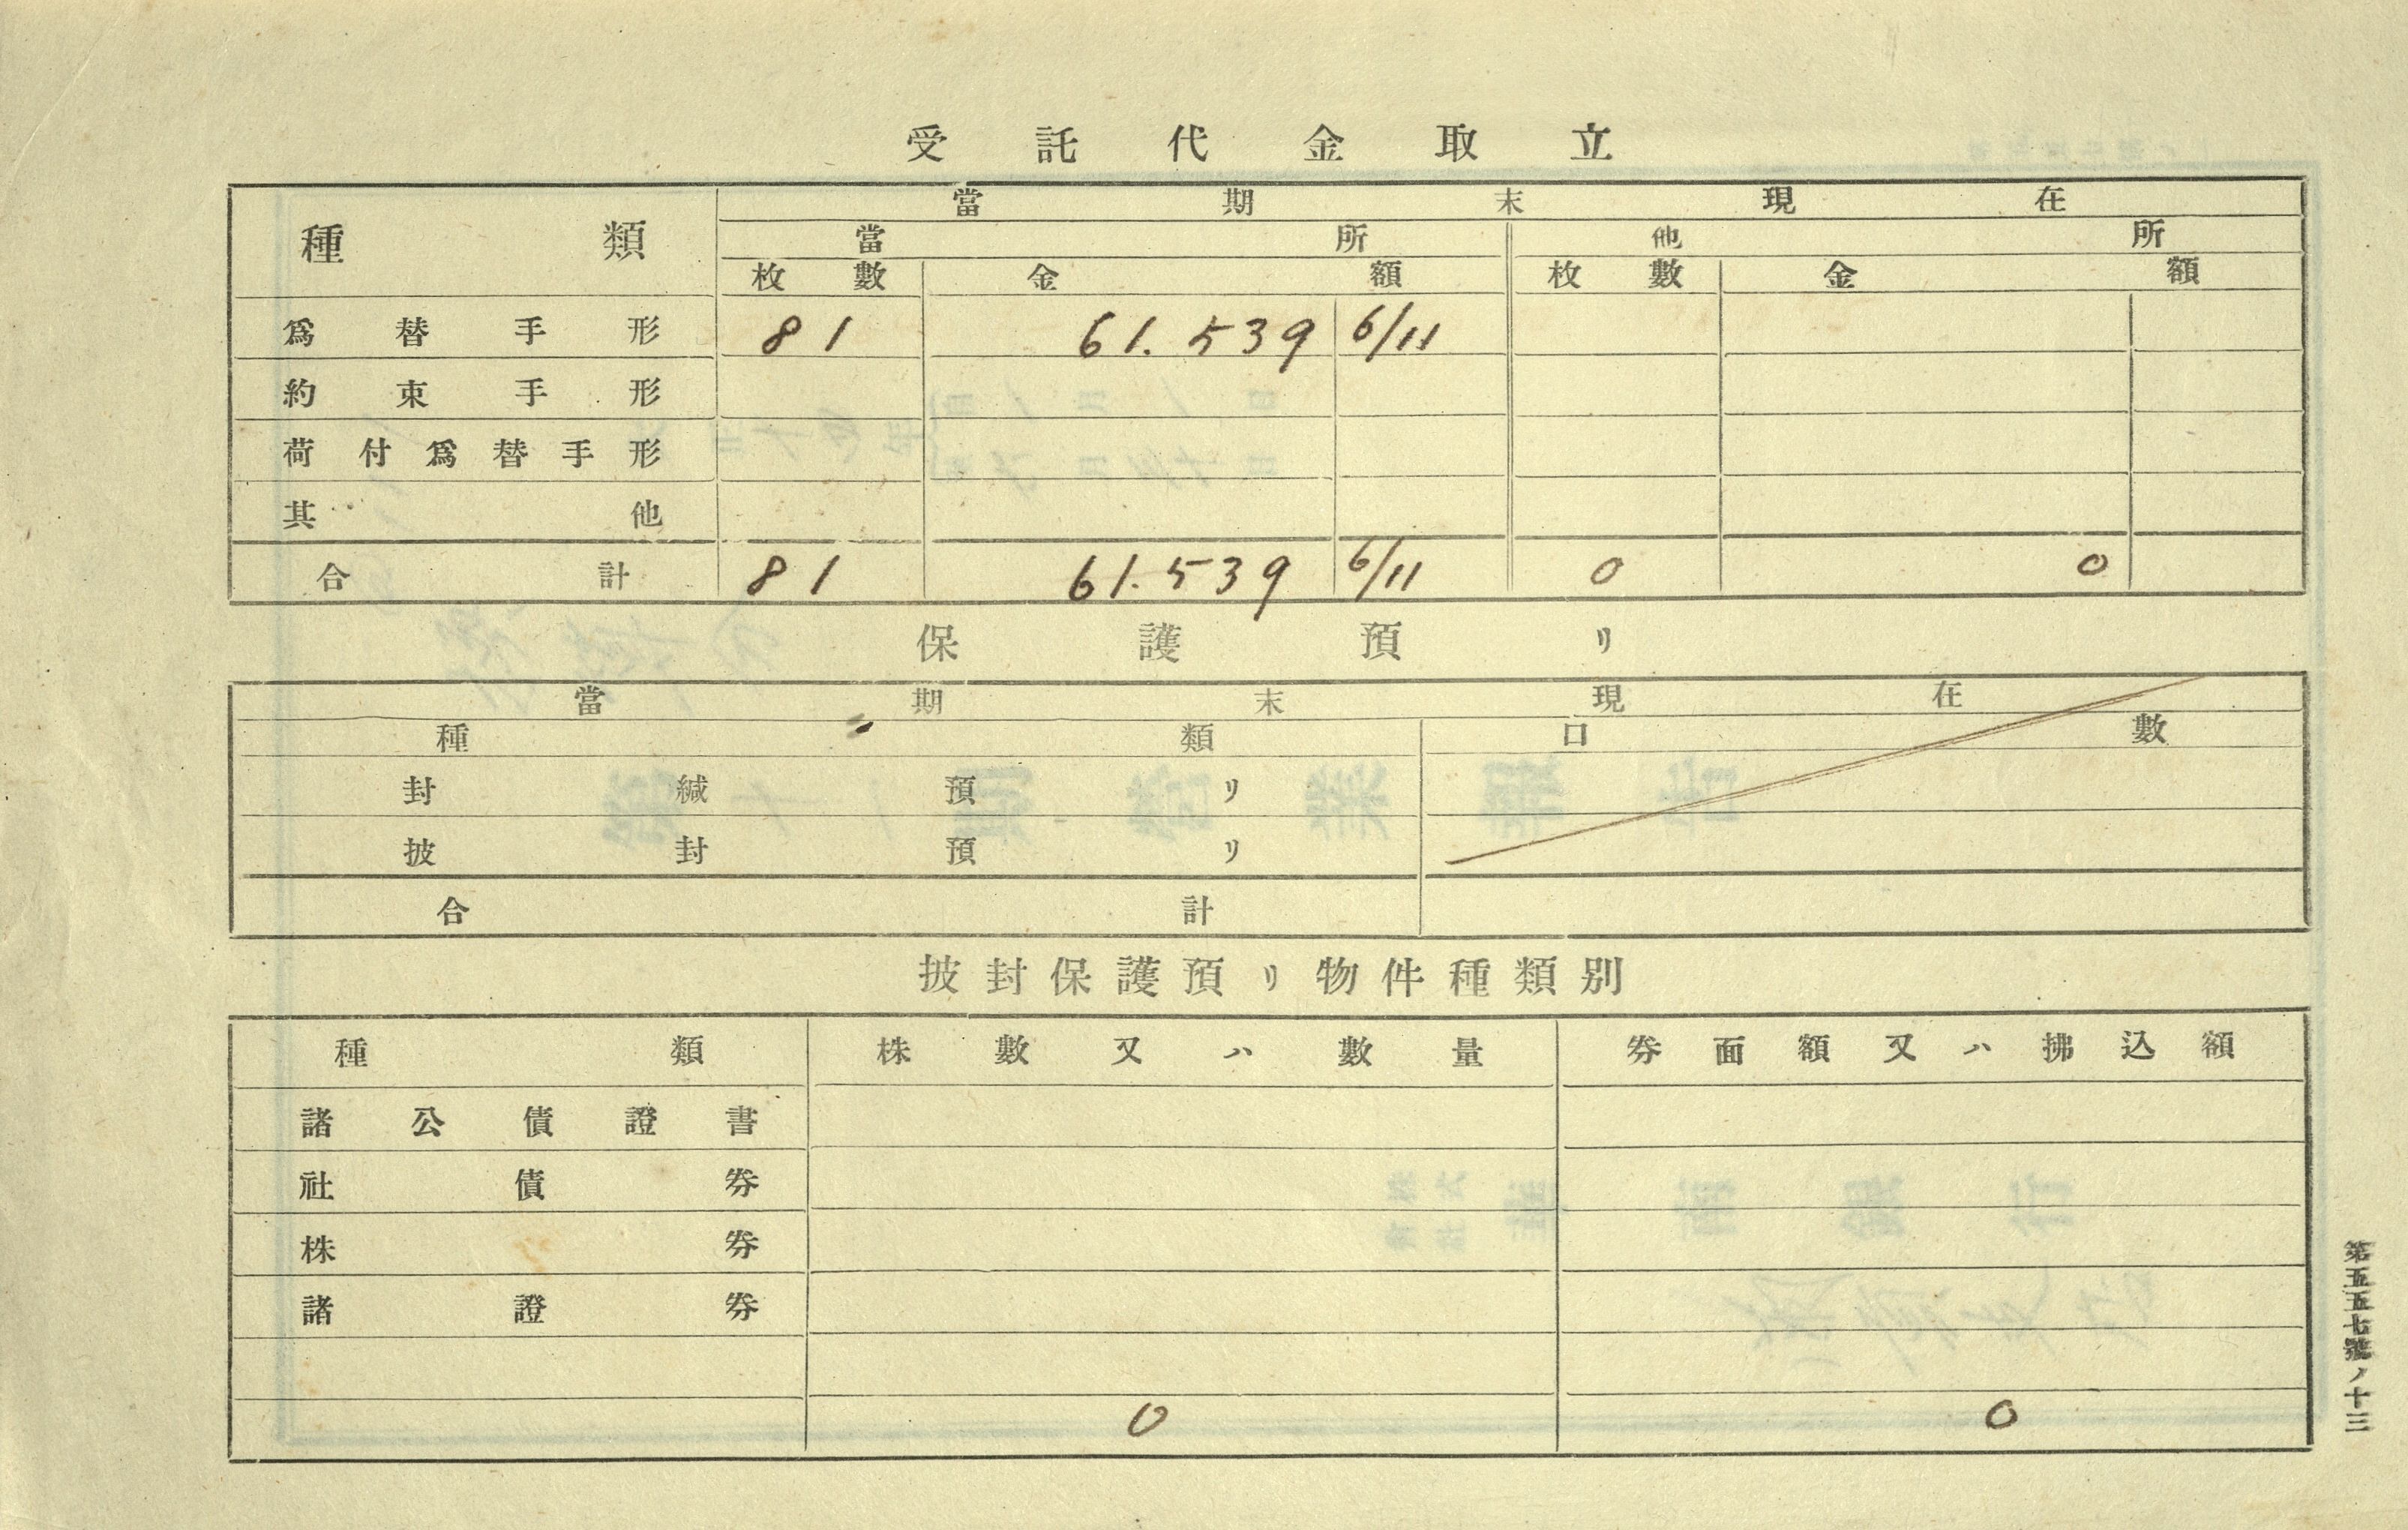 受託代金取立
種類 當期末現在
當所 他所
枚數 金額 枚數 金額
爲替手形 81 61.539 6/11
約束手形
荷付爲替手形
其他
合計 81 61.539 6/11 0 0
保護預リ
當期末現在
種類 口數
封緘預リ
披封預リ
合計
披封保護預リ物件種類別
種類 株數又ハ數量 券面額又ハ拂込額
諸公債證書
社債券
株券
諸證券
0 0
第五五七號ノ十三